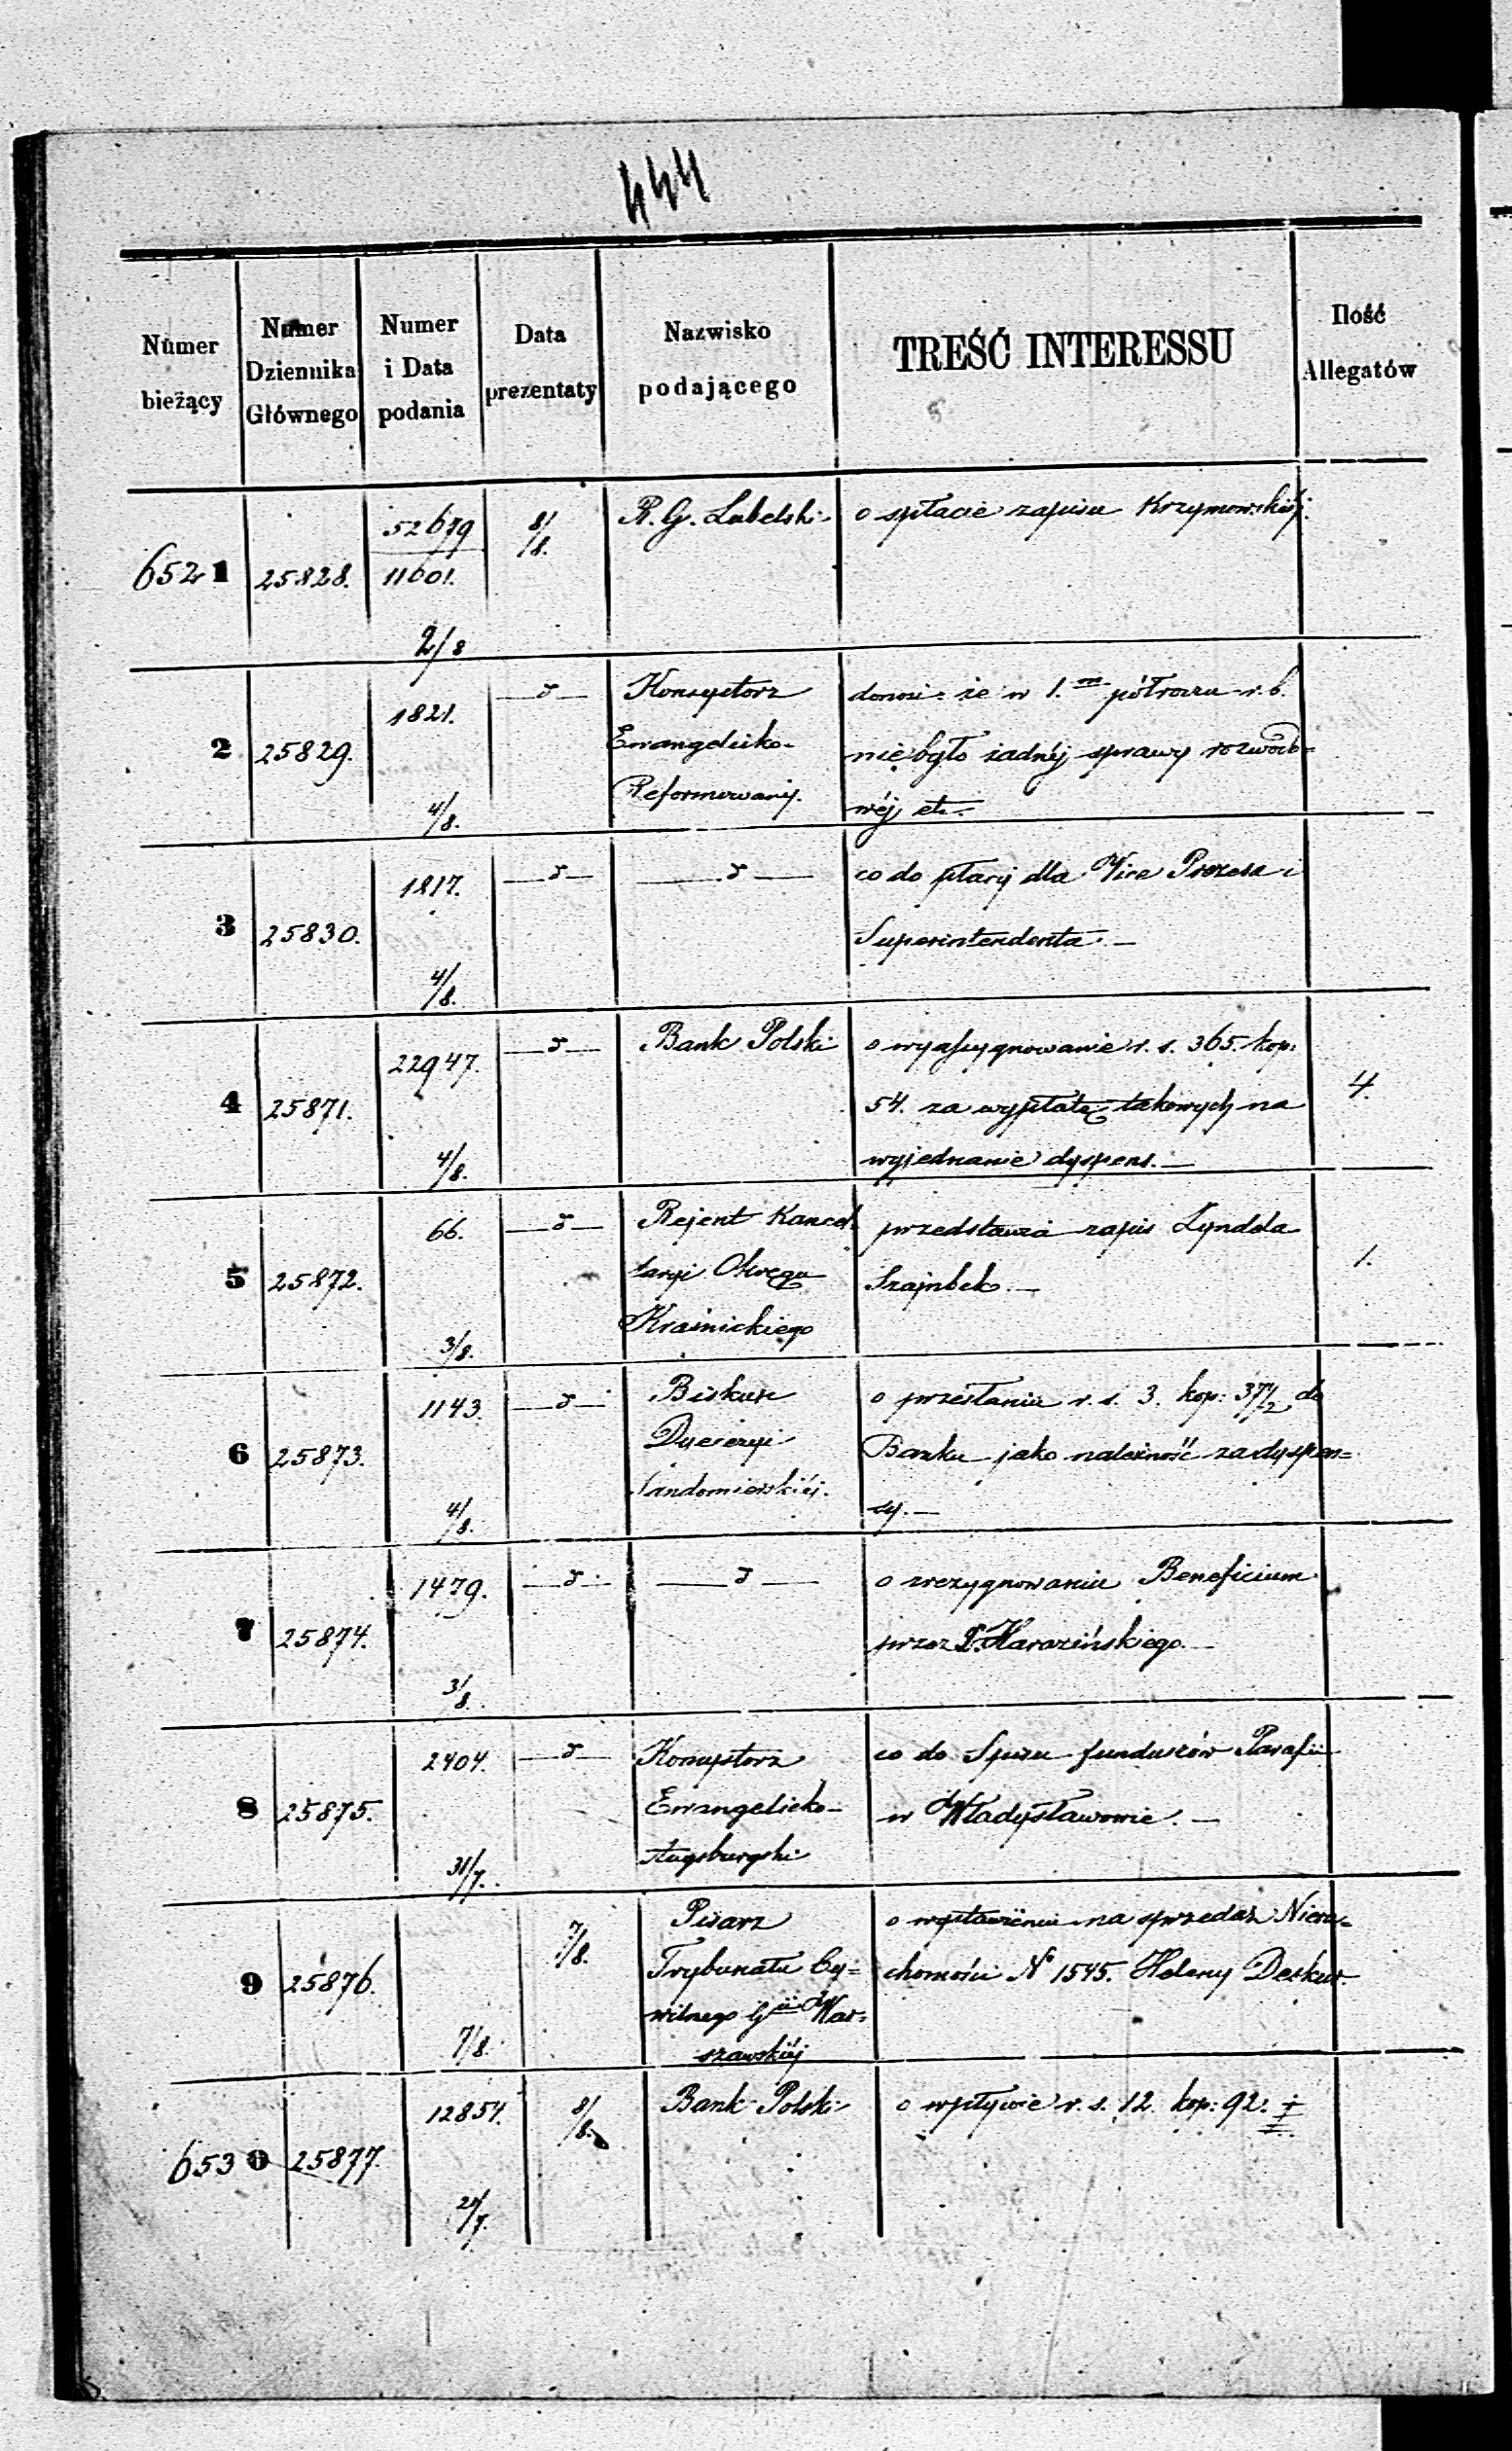 444
Numer bieżący
Numer Dziennika Głównego
Numer i Data podania
Data prezentaty
Nazwisko podającego
TREŚĆ INTERESSU
Ilość Allegatów
6521 25828. 52679 8/8. R. G. Lubelski o spłacie zapisu Krzymowskiéj.
11601.
2/8
2 25829. 1821. —d— Konsystorz donosi że w 1.m półroczu r. b.
Ewangelicko- nie było żadnéj sprawy rozwodo=
4/8. Reformowany. wéj etc.
3 25830. 1817. —d— —d— co do płacy dla Vice Prezesa i
4/8. Superintendenta. —
4 25871. 22947. —d— Bank Polski o wyassygnowanie r. s. 365. kop: 4.
54. za wypłatę takowych na
4/8. wyjednanie dyspens. —
5 25872. 66. —d— Rejent Kancel- przedstawia zapis Lyndela 1.
laryi Okręgu Szajnbek. —
3/8. Kraśnickiego
6 25873. 1143. —d— Biskup o przesłaniu r. s. 3. kop: 37 1/2 do
Dyecezyi Banku jako należność za dyspen=
4/8. Sandomierskiéj. sy. —
7 25874. 1479. —d— —d— o zrezygnowaniu Beneficium
3/8. przez X. Karazińskiego. —
8 25875. 2404. —d— Konsystorz co do Spisu funduszów Parafii
Ewangelicko- w Władysławowie. —
31/7. Augsburgski
9 25876. 7/8. Pisarz o wystawieniu na sprzedaż Nieru=
Trybunału Cy= chomości N 1545. Heleny
wilnego Gii War=
7/8. szawskiéj
6530 25877. 12854. 8/8. Bank Polski o wpływie r. s. 12 kop: 92.